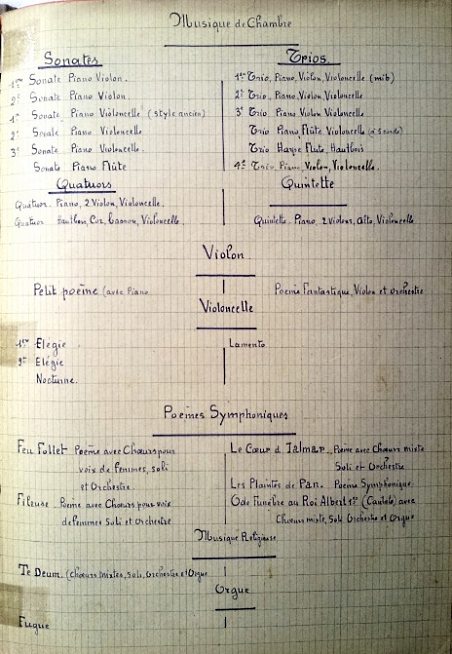 Musique de Chambre
Sonates
1ère Sonate Piano Violon.
2e Sonate Piano Violon
1e Sonate Piano Violoncelle (style ancien)
2e Sonate Piano Violoncelle
3e Sonate Piano Violoncelle.
Sonate Piano Flûte
Trios.
1er Trio, Piano, Violon, Violoncelle (mib)
2e Trio, Piano, Violon, Violoncelle
3e Trio Piano Violon Violoncelle
Trio Piano Flûte Violoncelle
Trio Harpe Flute, Hautbois
4e Trio, Piano, Violon, Violoncelle.
Quatuors
Quatuor. Piano, 2 Violon, Violoncelle.
Quatuor Hautbois, Cor, basson, Violoncelle
Quintette
Quintette. Piano, 2 Violons, Alto, Violoncelle.
Violon
Petit poème (avec Piano
Poème Fantastique, Violon et Orchestre
Violoncelle
1ère Elegie
2e Elégie
Nocturne.
Lamento
Poèmes Symphoniques
Feu Follet Poème avec Chœurs pour
voix de femmes, soli
et Orchestre
Fileuse Poème avec Chœurs pour voix
de femmes Soli et Orchestre
Le Cœur d'Ialmar. Poème avec Chœurs mixte
Soli et Orchestre
Les Plaintes de Pan. Poème Symphonique
Ode Funèbre au Roi Albert 1er (Cantate) avec
Chœurs mixte, Soli Orchestre et Orgue
Musique Religieuse
Te Deum. (Chœurs mixtes, Soli, Orchestre et Orgue
Orgue
Fugue